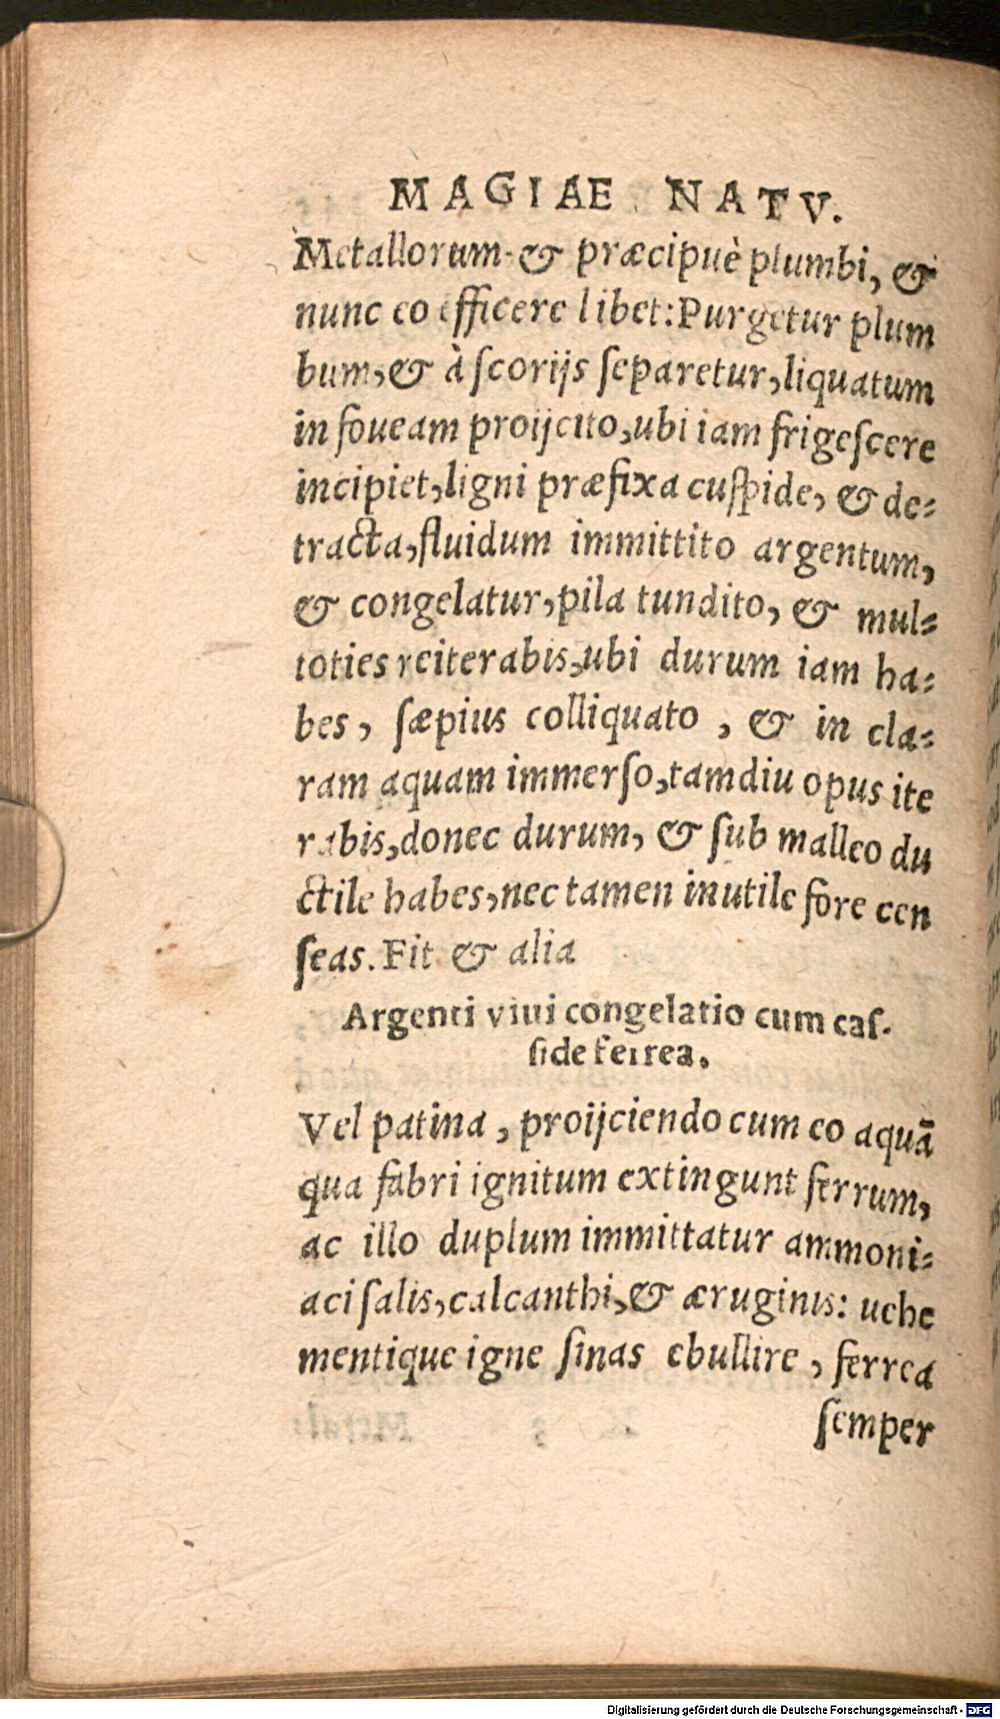 MAGIAE NATV.
Metallorum & præcipuè plumbi, &
nunc eo efficere libet: Purgetur plum
bum, & à scorijs separetur, liquatum
in foueam proijcito, ubi iam frigescere
incipiet, ligni præfixa cuspide, & de-
tracta, fluidum immittito argentum,
& congelatur, pila tundito, & mul-
toties reiterabis, ubi durum iam ha-
bes, sæpius colliquato, & in cla-
ram aquam immerso, tamdiu opus ite
rabis, donec durum, & sub malleo du
ctile habes, nec tamen inutile fore cen
seas. Fit & alia
Argenti viui congelatio cum cas-
side ferrea.
Vel patina, proijciendo cum eo aquã
qua fabri ignitum extingunt ferrum,
ac illo duplum immittatur ammoni-
aci salis, calcanthi, & æruginis: uehe
mentique igne sinas ebullire, ferrea
semper
Digitalisierung gefördert durch die Deutsche Forschungsgemeinschaft - DFG